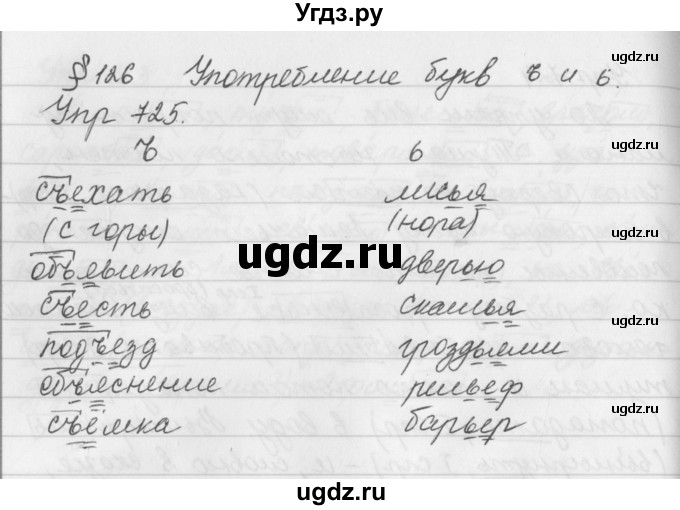 Угдз.ру
§ 126 Употребление букв ъ и ь.
Упр 725.
ъ ь
съехать лисья
(с горы) (нора)
объявить дверью
съесть скамья
подъезд гроздьями
объяснение рельеф
съёмка барьер
ugdz.ru
ugdz.ru
ugdz.ru
ugdz.ru
ugdz.ru
ugdz.ru
ugdz.ru
ugdz.ru